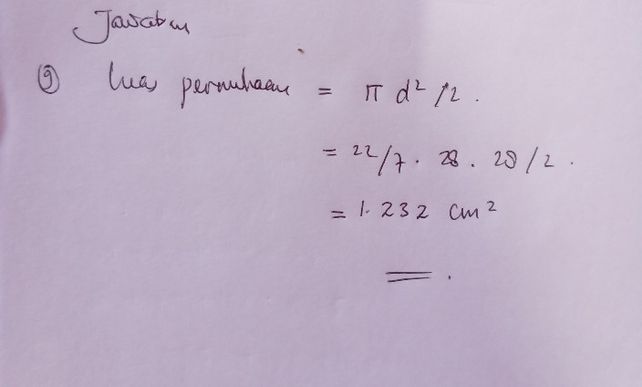 Jawaban
9) luas permukaan = π d² / 2 .
= 22/7 . 28 . 28 / 2 .
= 1.232 cm²